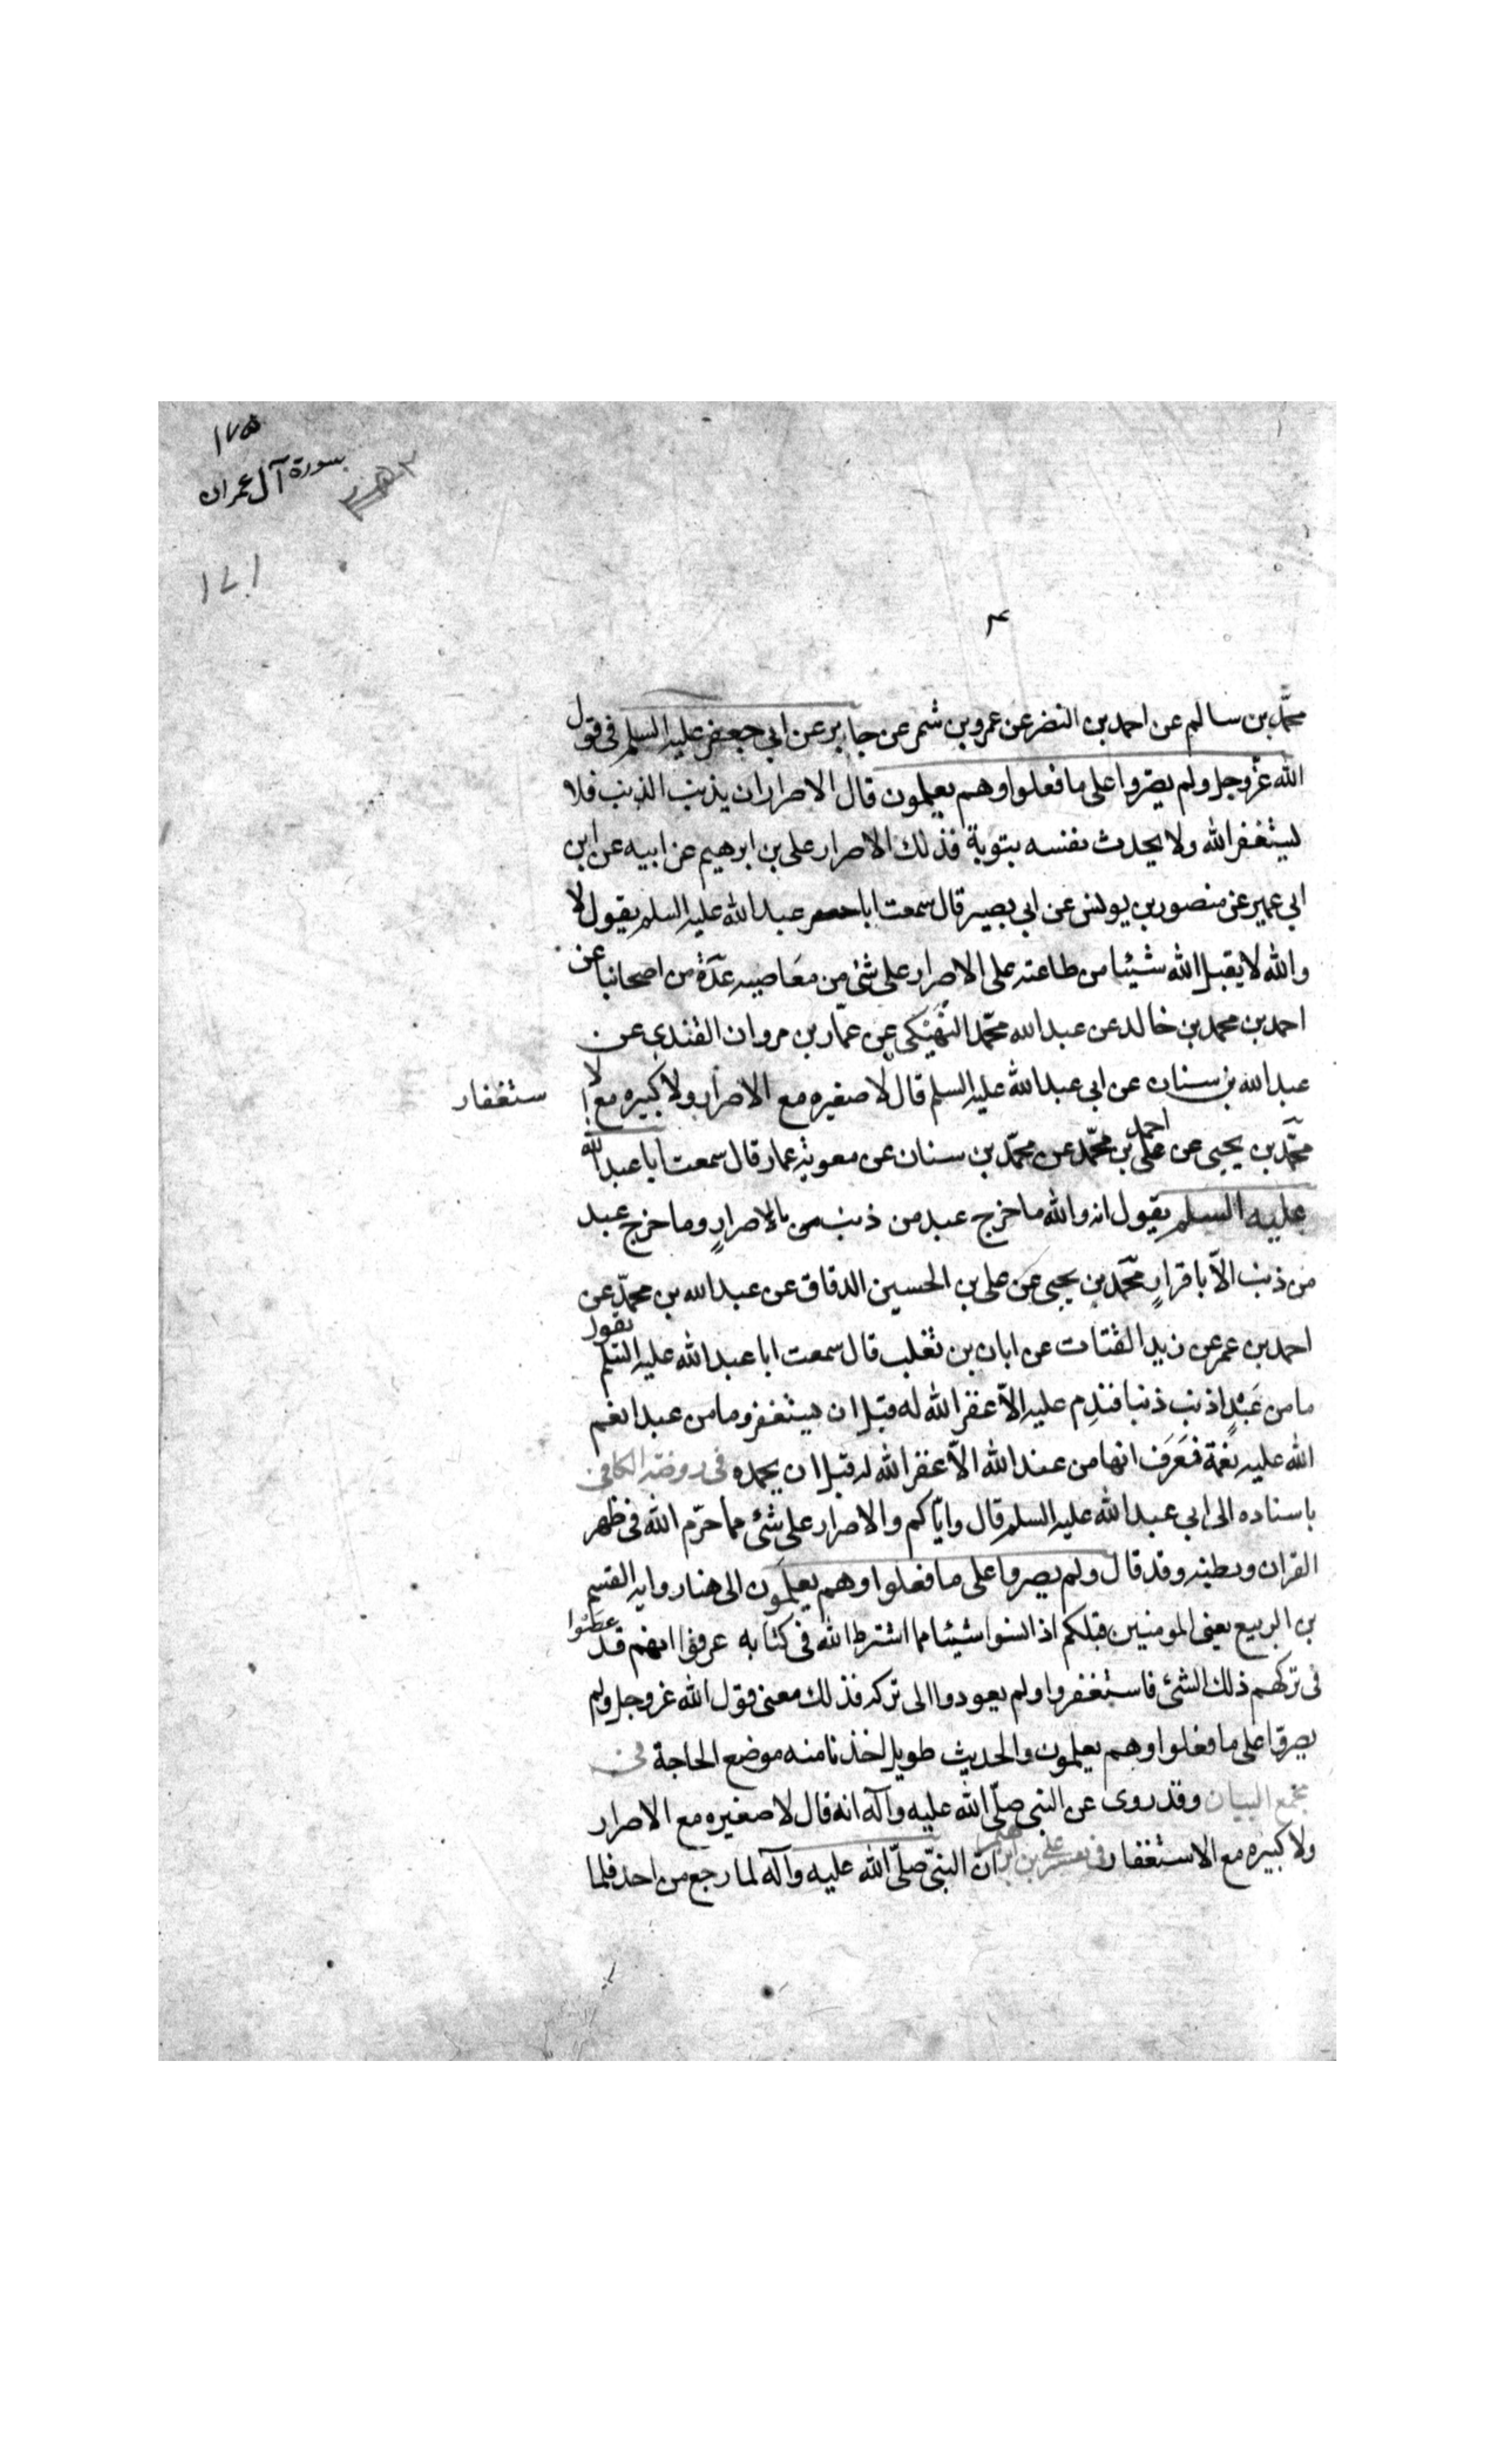 ١٧٥
سورة آل عمران
١٧١
محمّد بن سالم عن احمد بن النضر عن عمرو بن شمر عن جابر عن ابي جعفر عليه السلم في قول
الله عزّ وجل ولم يصرّوا على ما فعلوا وهم يعلمون قال الاصرار ان يذنب الذنب فلا
يستغفر الله ولا يحدث نفسه بتوبة فذلك الاصرار على بن ابرهيم عن ابيه عن ابن
ابي عمير عن منصور بن يونس عن ابي بصير قال سمعت ابا عبد الله عليه السلم يقول لا
والله لا يقبل الله شيئا من طاعته على الاصرار على شئ من معاصيه عدّة من اصحابنا عن
احمد بن محمد بن خالد عن عبد الله محمّد النَهيكى عن عمّار بن مروان القندى عن
عبد الله بن سنان عن ابي عبد الله عليه السلم قال لا صغيره مع الاصرار ولا كبيره مع الا
ستغفار
محمّد بن يحيى عن احمد بن محمّد عن محمّد بن سنان عن معويه عمار قال سمعت ابا عبد الله
عليه السلم يقول انه والله ما خرج عبد من ذنب بالاصرارٍ وما خرج عبد
من ذنب الّا باقرارٍ محمّد بن يحيى عن على بن الحسين الدقاق عن عبد الله بن محمّد عن
احمد بن عمر عن زيد القتات عن ابان بن تغلب قال سمعت ابا عبد الله عليه السّلم يقول
ما من عَبْدٍ اذنب ذنبا فندِم عليه الّا غفر الله له قبل ان يستغفر وما من عبد انعم
الله عليه نعمة فعَرَفَ انها من عند الله الّا غفر الله له قبل ان يحمده فى روضة الكافى
باسناده الى ابي عبد الله عليه السلم قال وايّاكم والاصرار على شئ مما حرّم الله فى ظهر
القران وبطنه وقد قال ولم يصروا على ما فعلوا وهم يعلمون الى هنا روايه القسم
بن الربيع يعنى المومنين قبلكم اذا نسوا شيئا مما اشترط الله فى كتابه عرفوا انهم قد عصوا
فى تركهم ذلك الشئ فاستغفروا ولم يعودوا الى تركه فذلك معنى قول الله عز وجل ولم
يصروا على ما فعلوا وهم يعلمون والحديث طويل اخذنا منه موضع الحاجة فى
مجمع البيان وقد روى عن النبى صلّى الله عليه وآله انه قال لا صغيره مع الاصرار
ولا كبيره مع الاستغفار فى تفسير على بن ابرهيم انّ النبىّ صلّى الله عليه وآله لما رجع من احد فلما